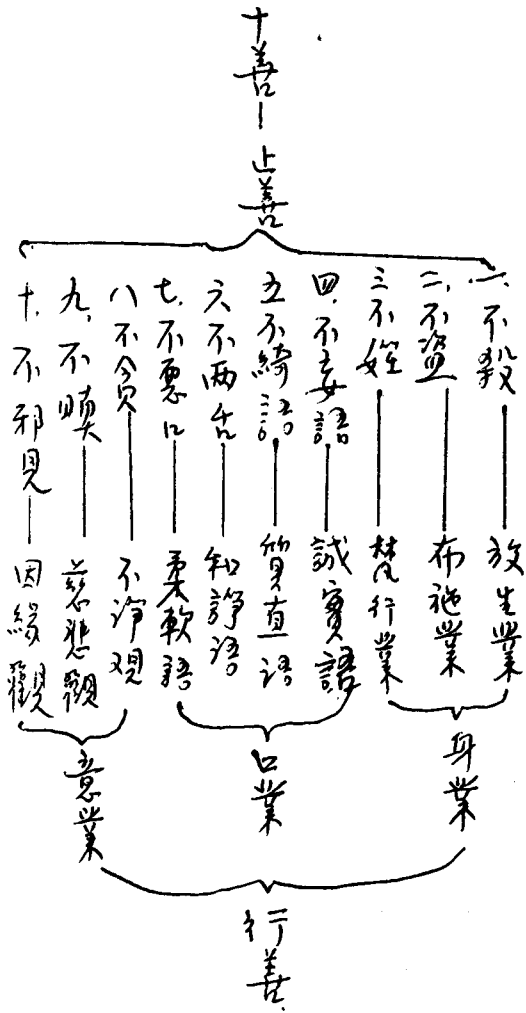 十善
止善
一、不殺
放生業
二、不盜
布施業
三不婬
梵行業
四、不妄語
誠實語
五不綺語
質直語
六不兩舌
和諍語
七、不惡口
柔軟語
八不貪
不淨观
九、不瞋
慈悲觀
十、不邪見
因緣觀
身業
口業
意業
行善